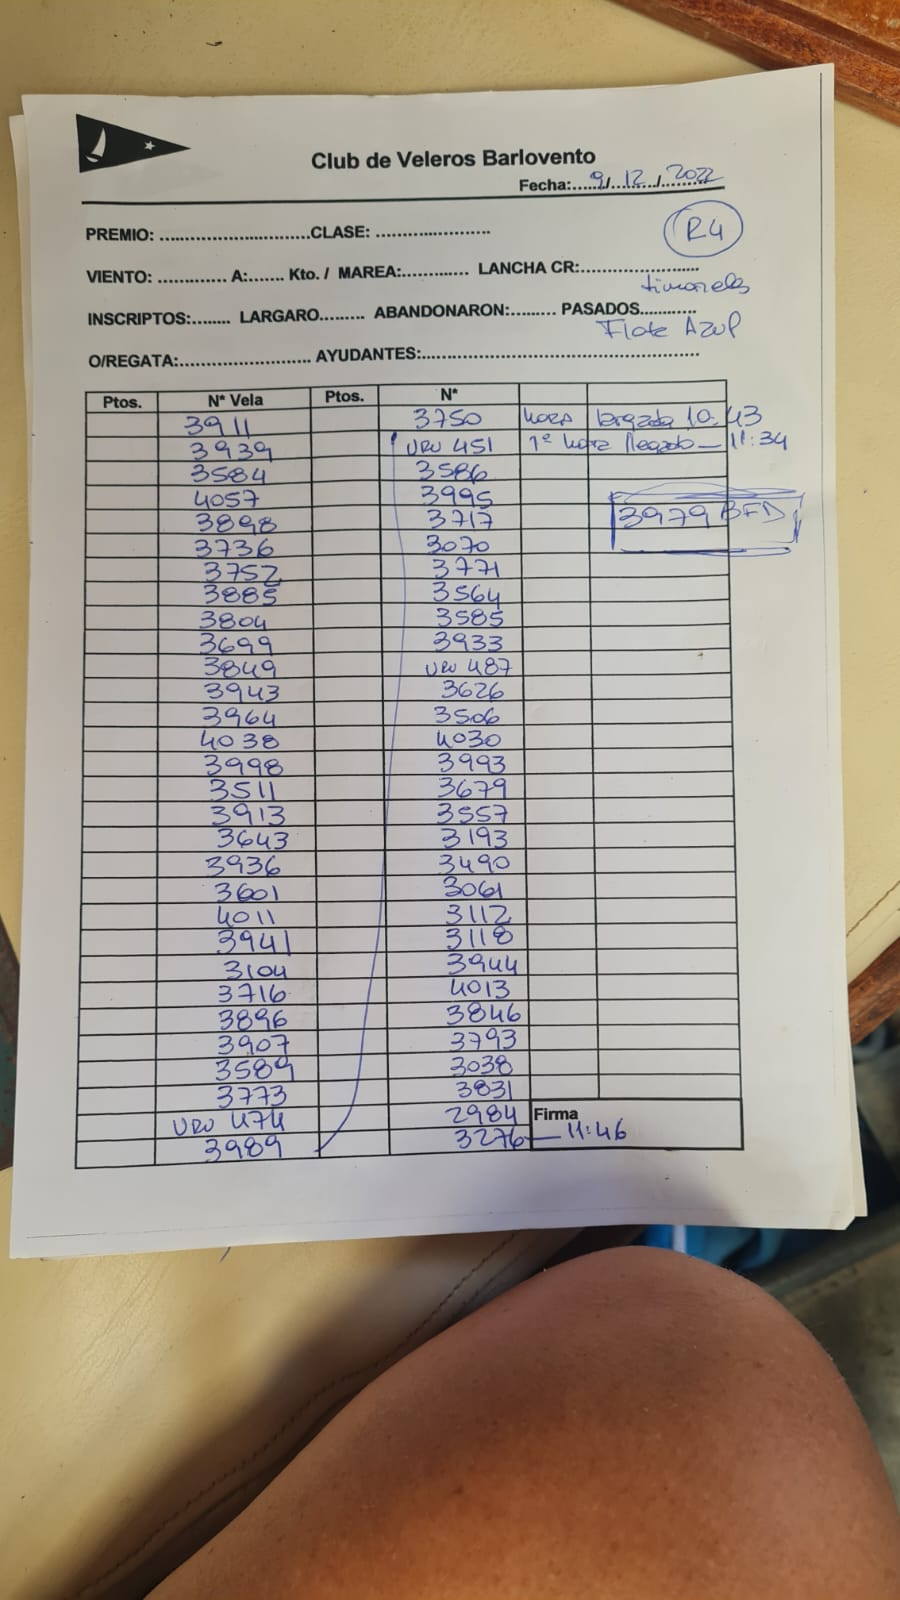 Club de Veleros Barlovento
Fecha:.....9./..12../...2022
PREMIO: ..............................CLASE: ........................
R4
VIENTO: ............. A:....... Kto. / MAREA:............. LANCHA CR:........................
timoneles
INSCRIPTOS:........ LARGARO......... ABANDONARON:......... PASADOS...........
Flota Azul
O/REGATA:......................... AYUDANTES:......................................................
Ptos. N* Vela Ptos. N*
3911 3750 HORA largada 10:43
3939 URU 451 1ª hora llegada — 11:34
3584 3586
4057 3995
3898 3717 3979 BFD
3736 3070
3752 3771
3885 3564
3804 3585
3699 3933
3849 URU 487
3943 3626
3964 3506
4038 4030
3998 3993
3511 3679
3913 3557
3643 3193
3936 3490
3601 3061
4011 3112
3941 3118
3104 3944
3716 4013
3896 3846
3907 3793
3589 3038
3773 3831
URU 474 2984 Firma
3989 3276 — 11:46